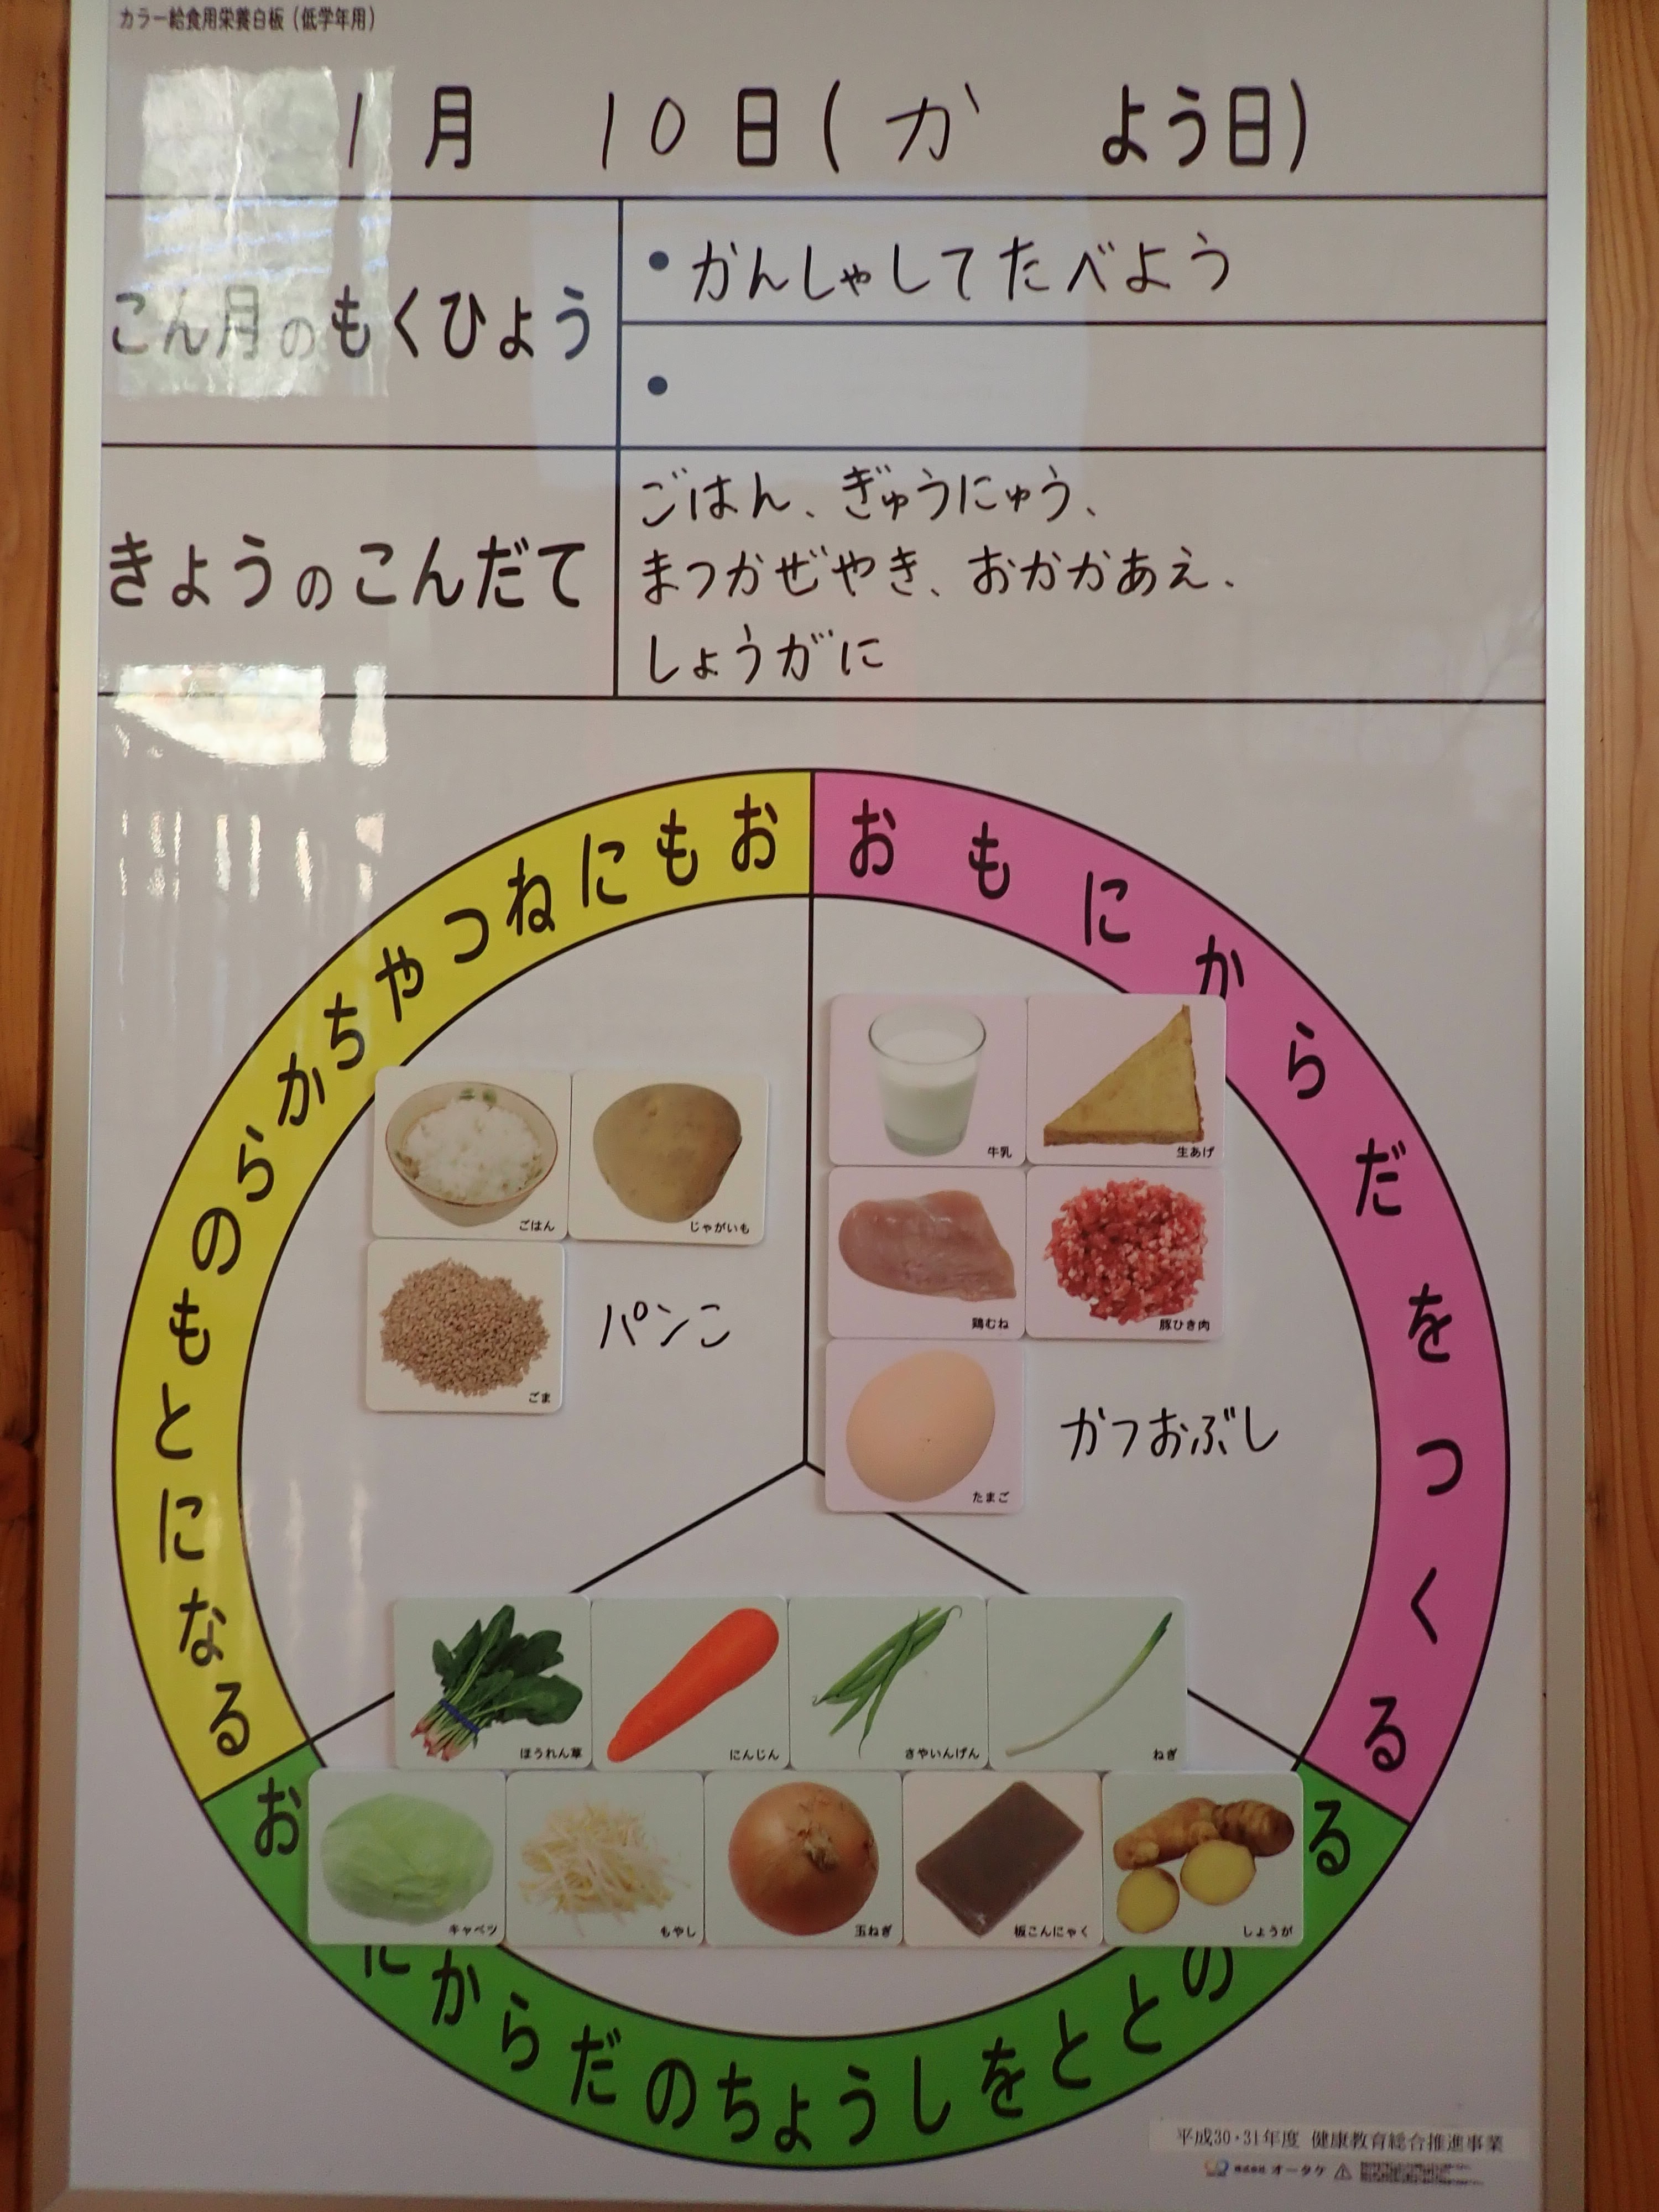 カラー給食用栄養白板（低学年用）
1月 10日(か よう日)
こん月のもくひょう
・かんしゃしてたべよう
・
きょうのこんだて
ごはん、ぎゅうにゅう、
まつかぜやき、おかかあえ、
しょうがに
おもにねつやちからのもとになる
おもにからだをつくる
牛乳
生あげ
ごはん
じゃがいも
鶏むね
豚ひき肉
ごま
パンこ
たまご
かつおぶし
ほうれん草
にんじん
さやいんげん
ねぎ
キャベツ
もやし
玉ねぎ
板こんにゃく
しょうが
お
にからだのちょうしをととの
る
平成30・31年度 健康教育総合推進事業
株式会社 オータケ